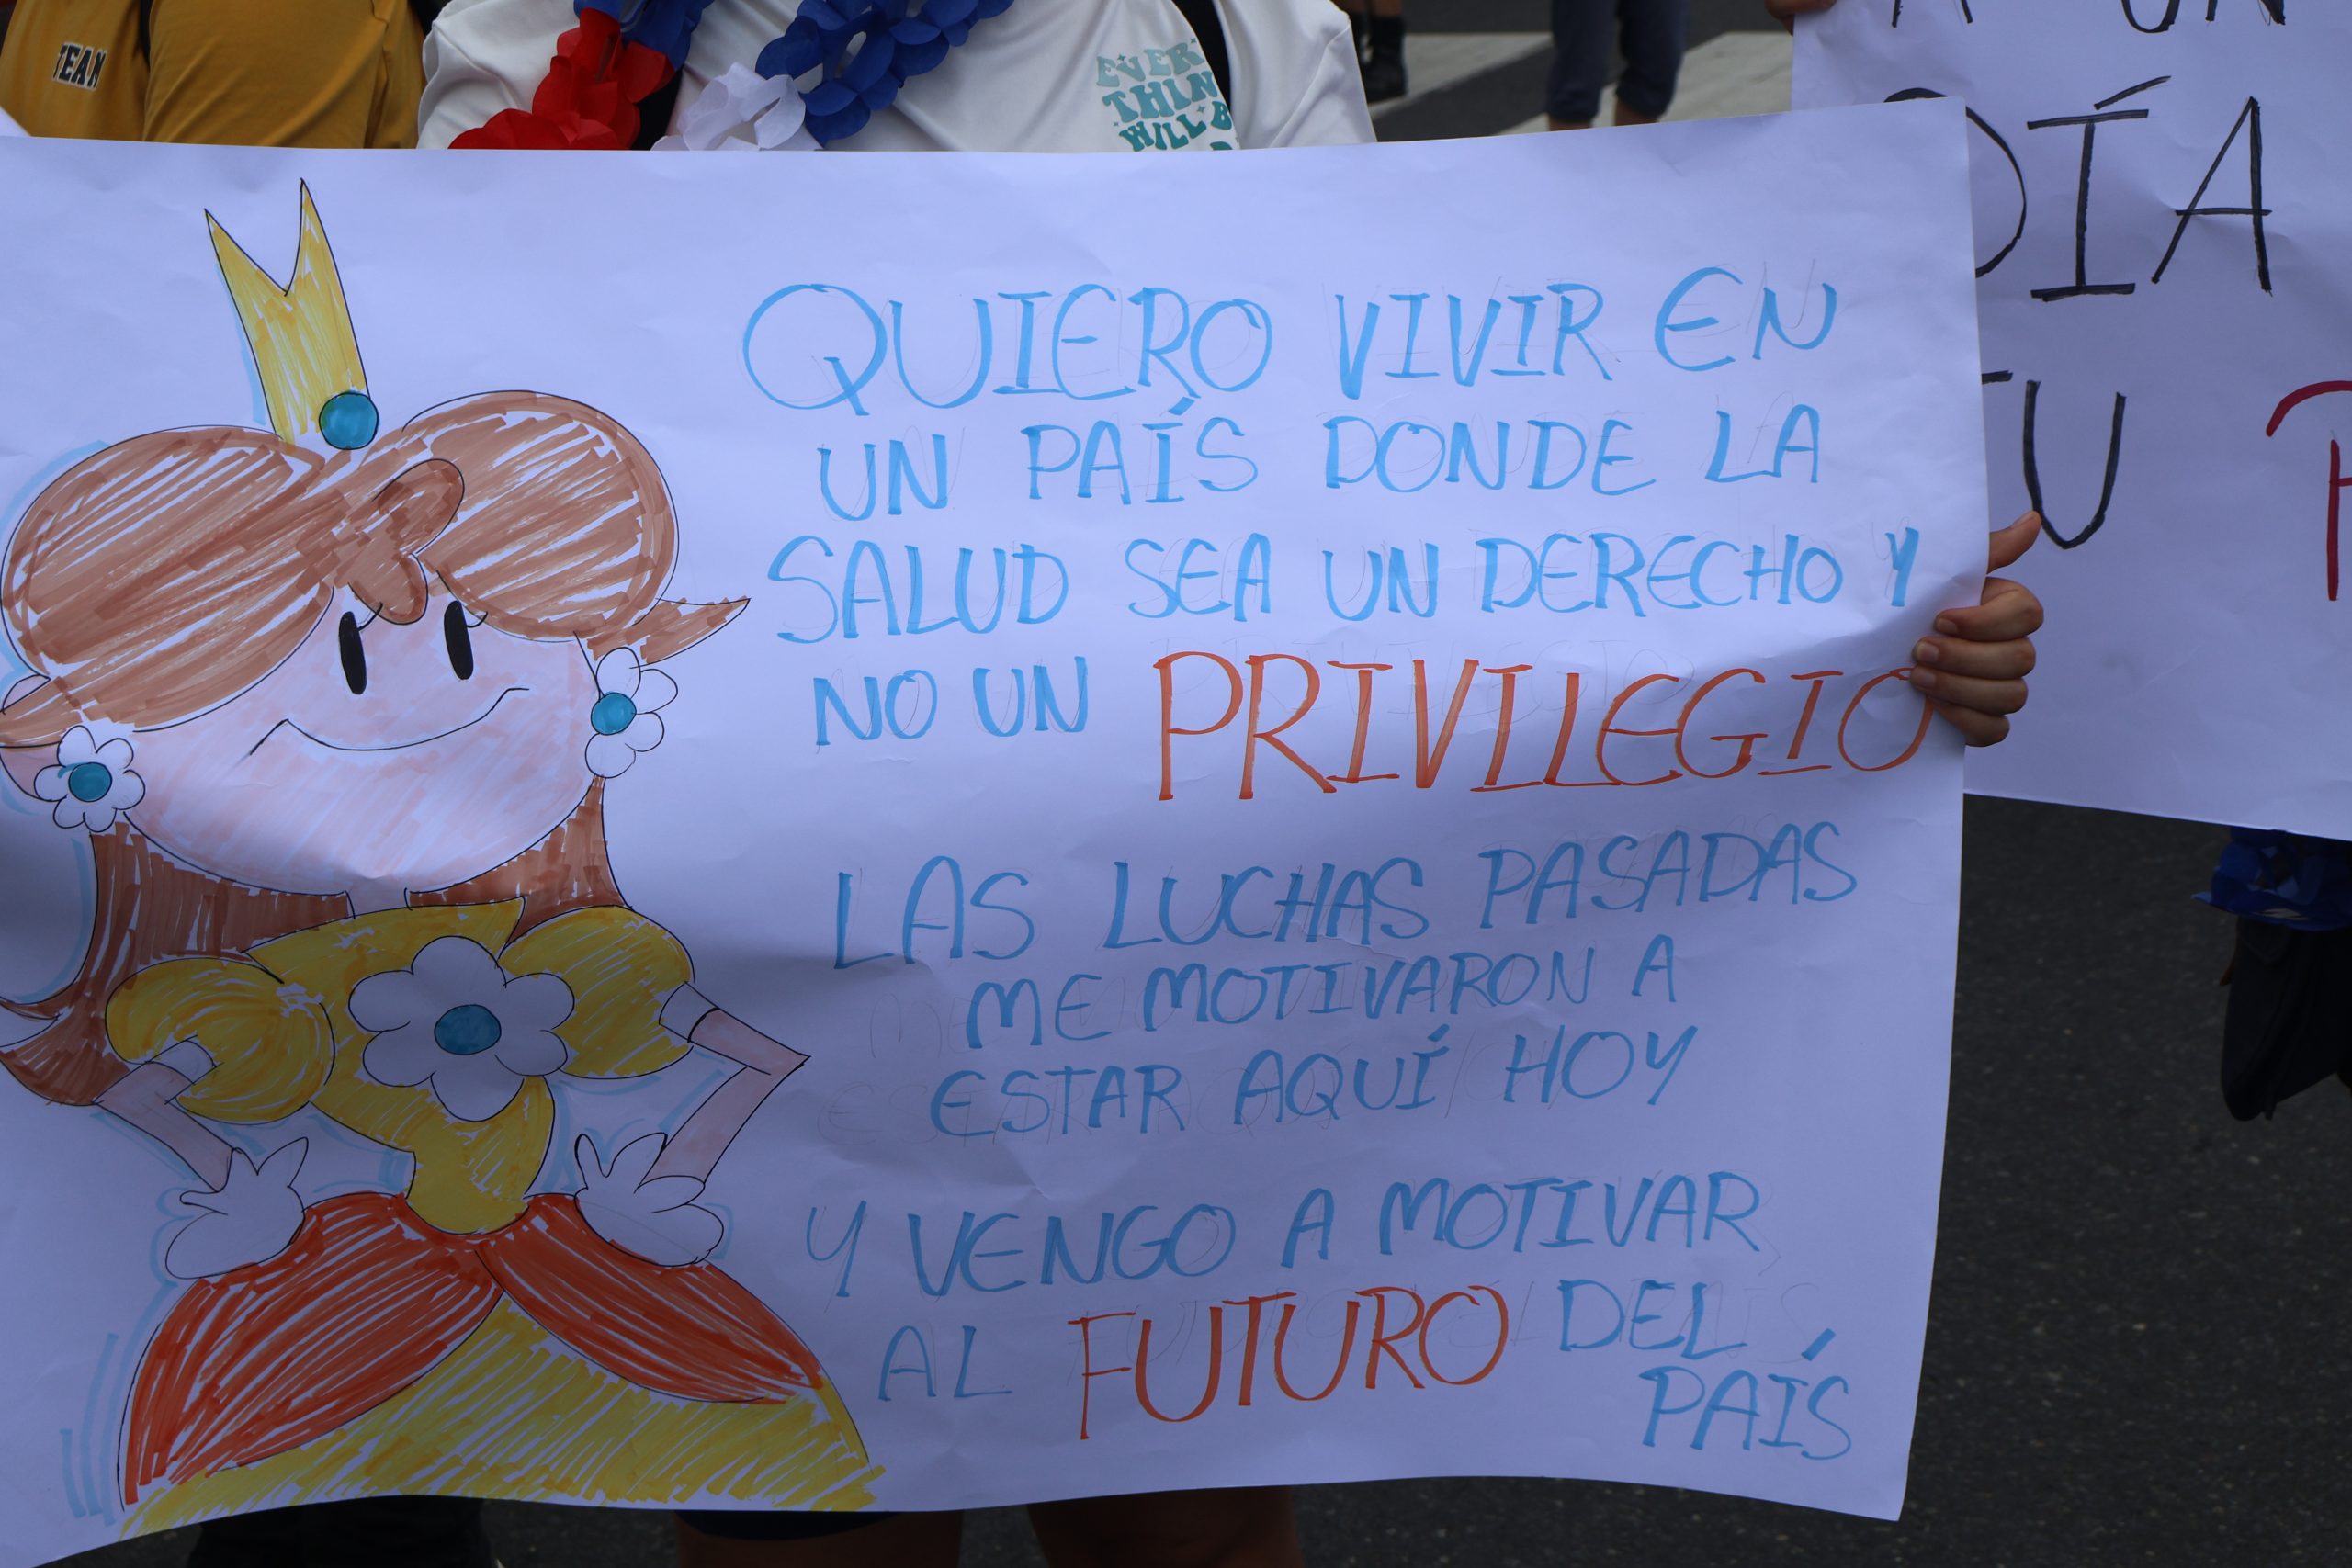 TEAM
EVERY
THIN
WILL B
QUIERO VIVIR EN
UN PAÍS DONDE LA
SALUD SEA UN DERECHO Y
NO UN PRIVILEGIO
LAS LUCHAS PASADAS
ME MOTIVARON A
ESTAR AQUÍ HOY
Y VENGO A MOTIVAR
AL FUTURO DEL
PAÍS
A UN
DÍA
TU